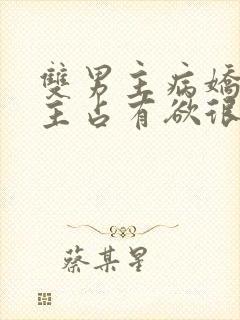 雙男主病嬌
主占有欲很
蔡某星